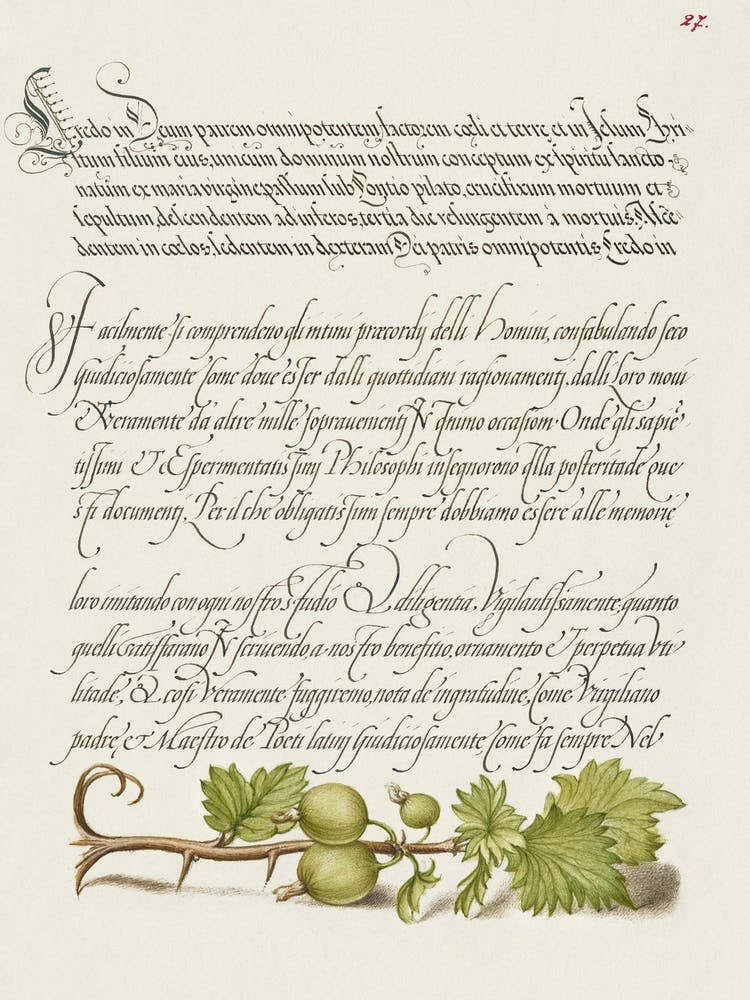 27.
Credo in Deum patrem omnipotentem, factorem cœli et terre et in Jesum Chri-
stum filium eius, unicum dominum nostrum conceptum ex spiritu sancto
natum ex maria virgine passum sub Pontio pilato, crucifixum mortuum et
sepultum, descendentem ad inferos, tertia die resurgentem à mortuis. Ascē
dentem in cœlos, sedentem in dexteram Dei patris omnipotentis, Credo in
Facilmente si comprendeno gli intimi præcordij delli Homini, confabulando seco
Giudiciosamente Come doue esser dalli quottidiani ragionamentj, dalli Loro moui
& Veramente da altre mille soprauenientj occasiom. Onde gli sapiē
tissimi Et Esperimentatissimj Philosophi insegnorono Alla posteritade Que
sti documentj, Per il che obligatissimi sempre dobbiamo essere alle memorie
loro imitando con ogni nostro studio & diligentia, Vigilantissamente, quanto
quelli satisffarano Jn scriuendo, a nostro benefitio, ornamento Et perpetua Vti
litade, & cosi Veramente fuggiremo, nota de ingratudine, Come Virgiliano
padre & Maestro de Poeti latinj Giudiciosamente Come fa sempre Nel